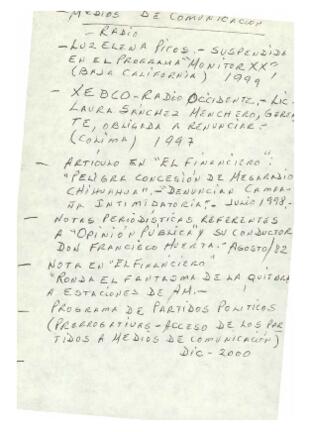 - MEDIOS DE COMUNICACIÓN
- RADIO
- LUZ ELENA PICOS.- SUSPENDIDA
EN EL PROGRAMA "MONITOR XX"
(BAJA CALIFORNIA) 1999
- XEBCO-RADIO OCCIDENTE.- LIC.
LAURA SÁNCHEZ MENCHERO, GEREN
TE, OBLIGADA A RENUNCIAR.-
(COLIMA) 1997
- ARTÍCULO EN "EL FINANCIERO":
"PELIGRA CONCESIÓN DE MEGARADIO
CHIHUAHUA".- "DENUNCIAN CAMPA-
ÑA INTIMIDATORIA".- JULIO 1998.-
- NOTAS PERIODÍSTICAS REFERENTES
A "OPINIÓN PÚBLICA" Y SU CONDUCTOR
DON FRANCISCO HUERTA.- AGOSTO/82
- NOTA EN "EL FINANCIERO"
"RONDA EL FANTASMA DE LA QUIEBRA
A ESTACIONES DE AM.-
- PROGRAMA DE PARTIDOS POLÍTICOS
(PRERROGATIVAS - ACCESO DE LOS PAR
TIDOS A MEDIOS DE COMUNICACIÓN)
DIC - 2000